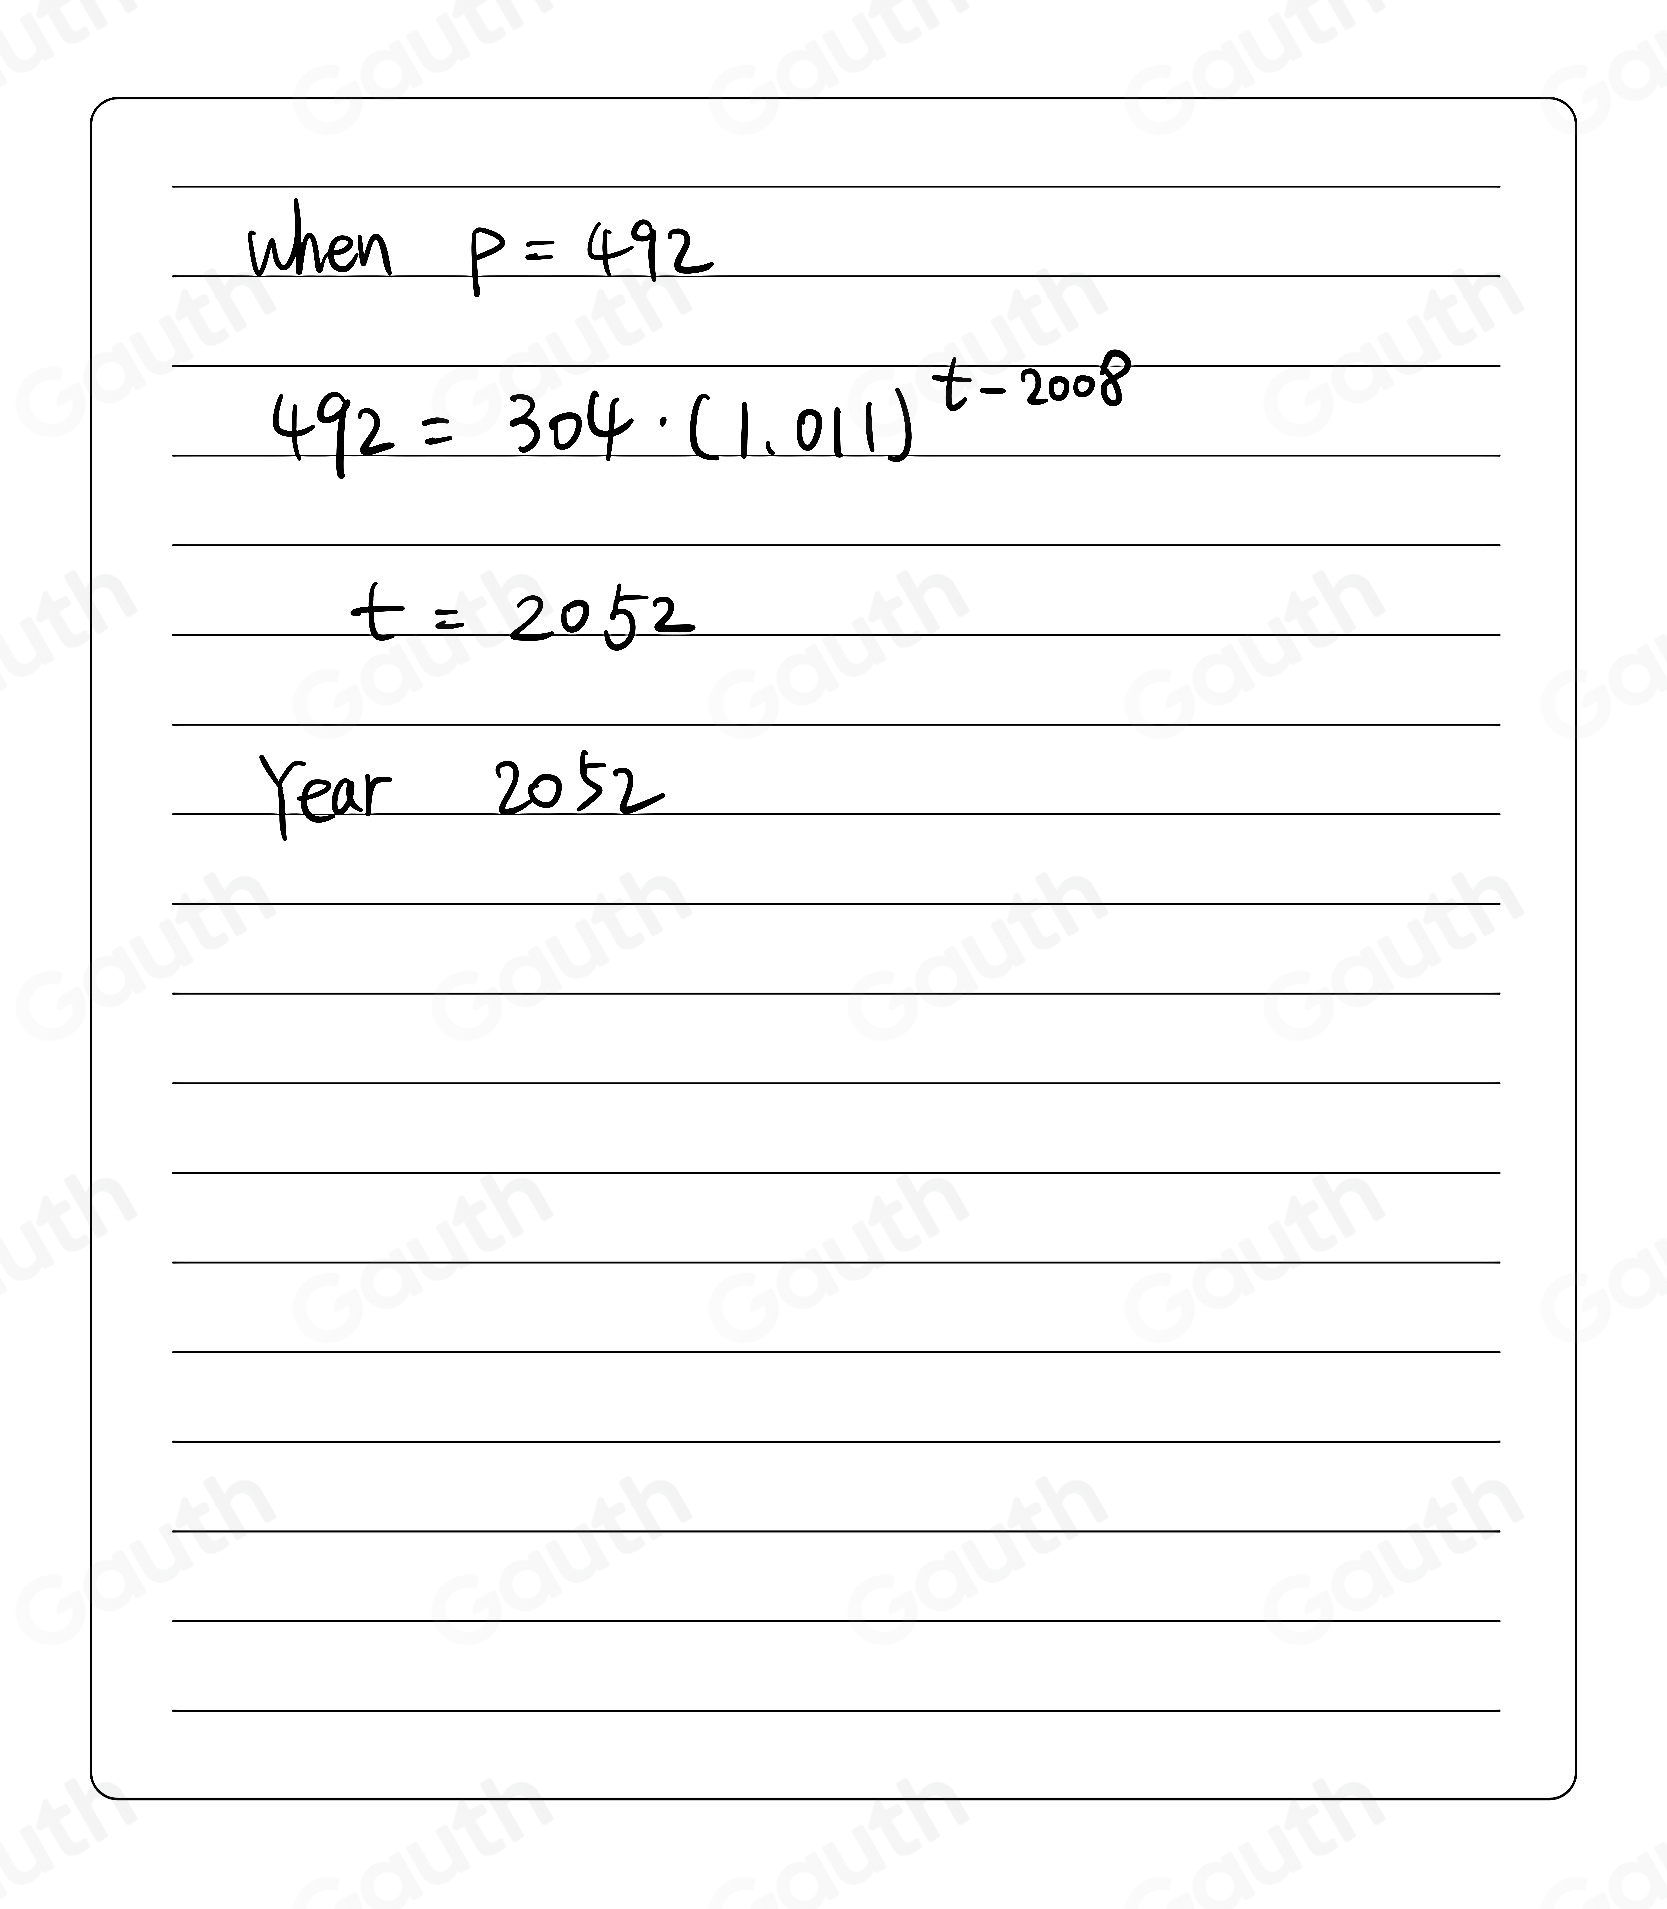 when P = 492
492 = 304 · (1.011)^t-2008
t = 2052
Year 2052
Gauth